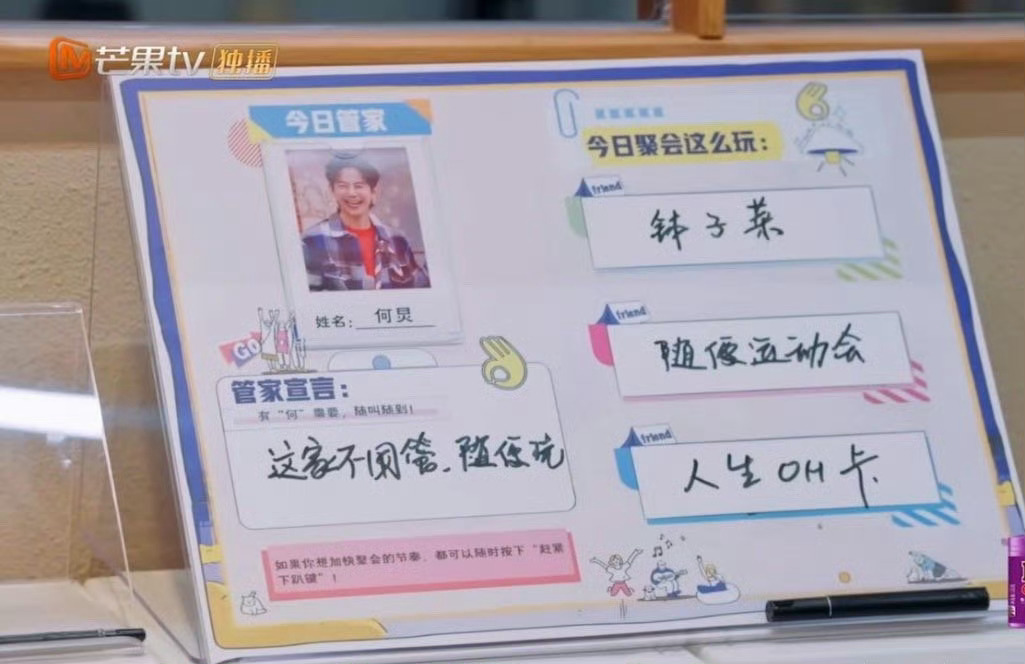 芒果tv 独播
今日管家
姓名: 何炅
GO
管家宣言:
有“何”需要，随叫随到！
这家不用管、随便玩
如果你想加快聚会的节奏，都可以随时按下“赶紧
下趴键”！
今日聚会这么玩:
friend
钵子菜
friend
随便运动会
friend
人生OH卡